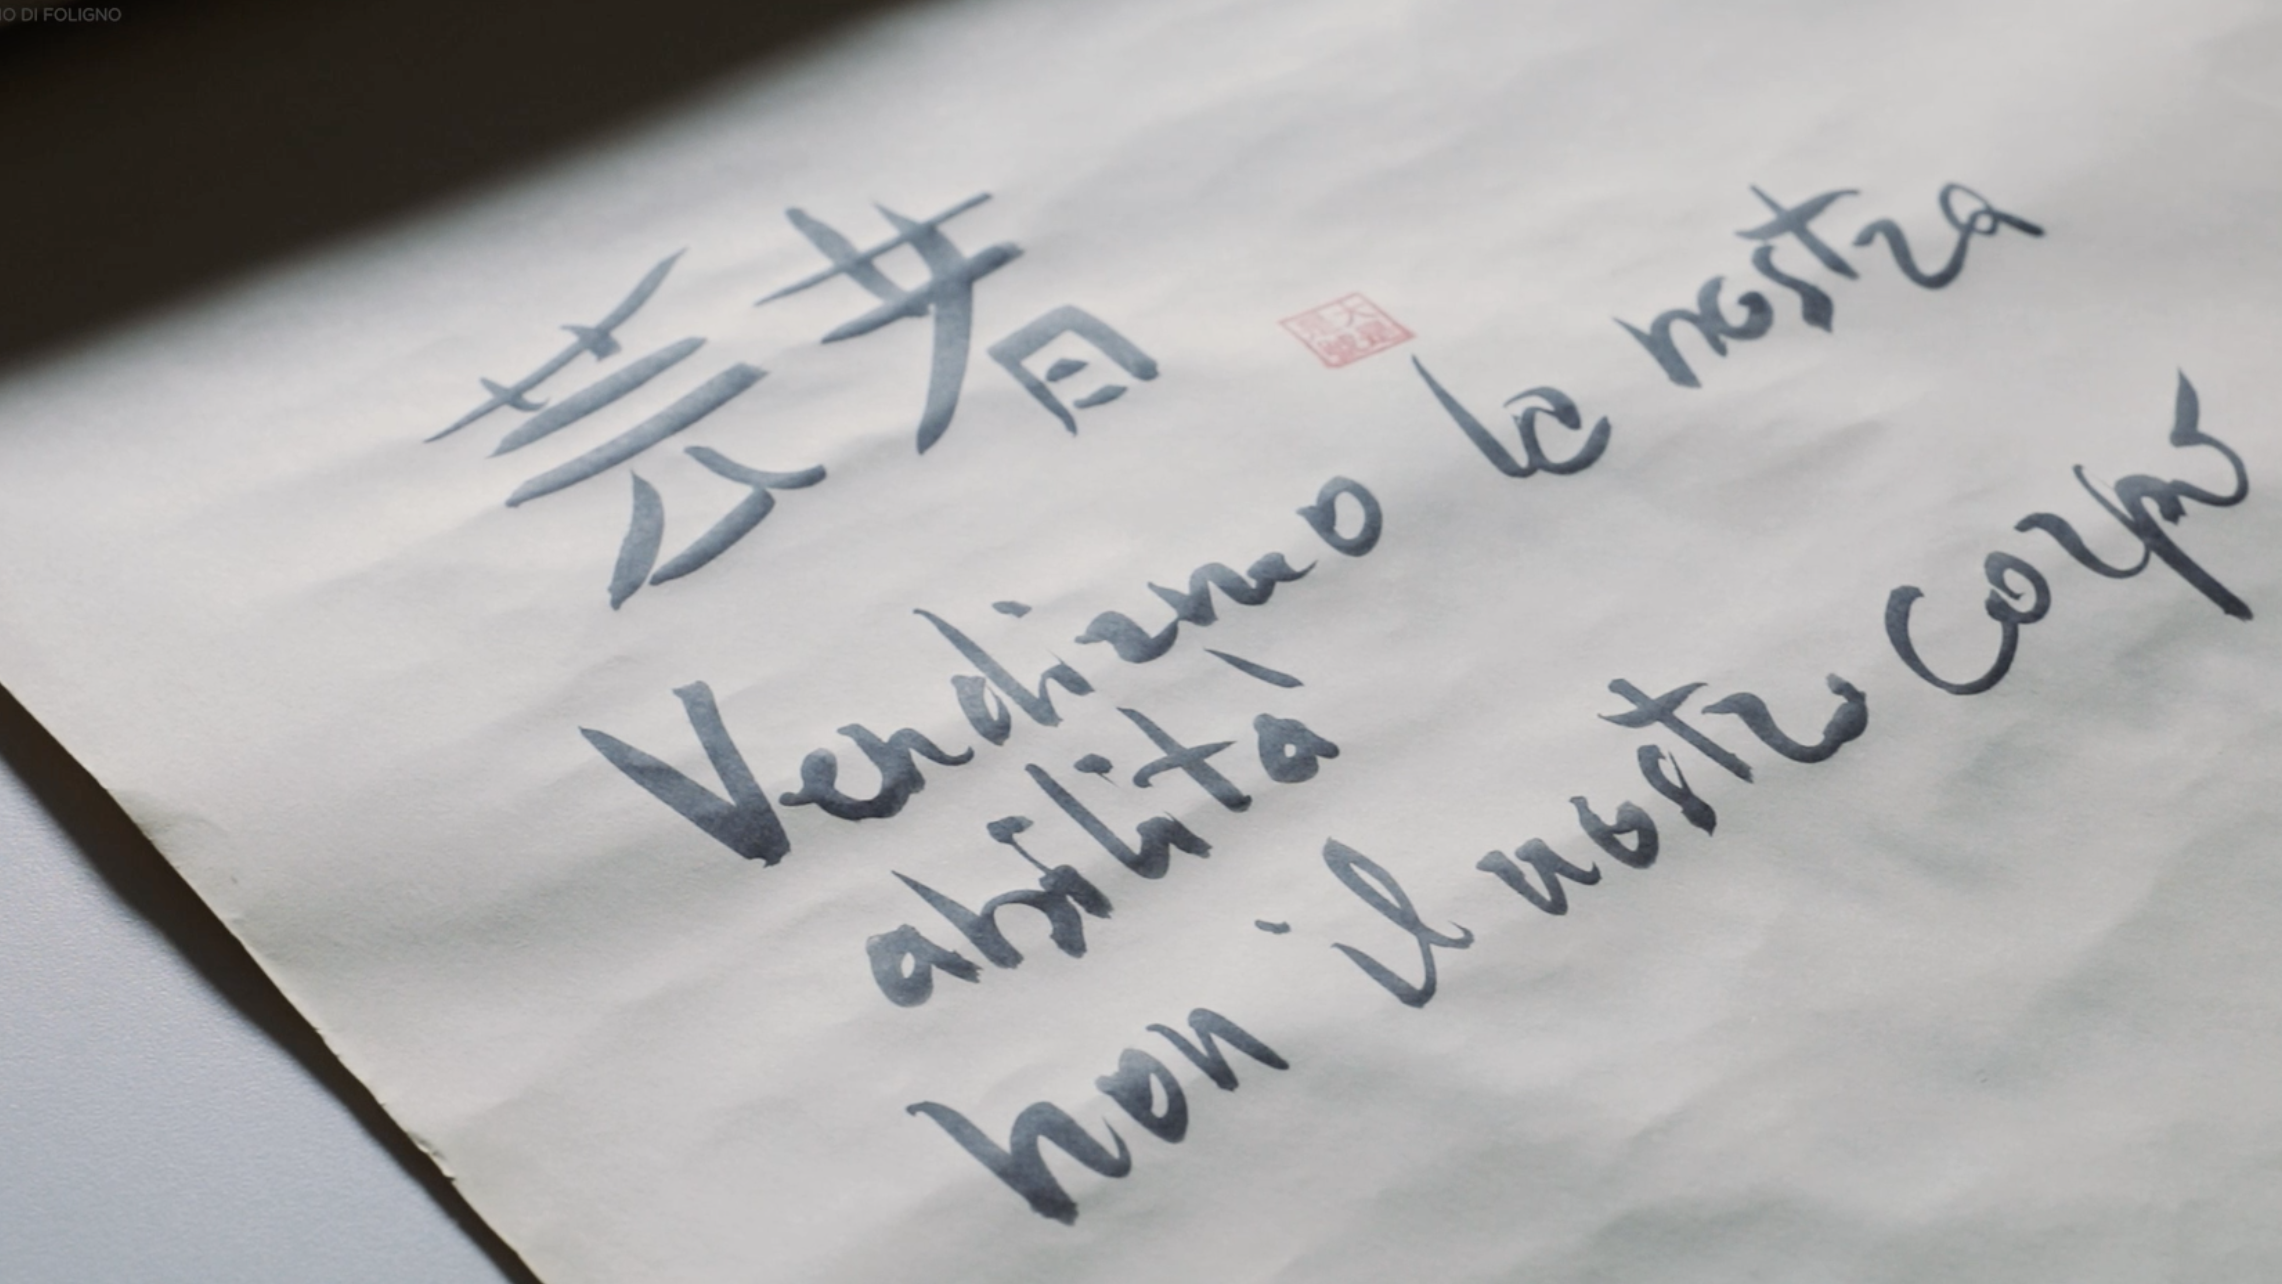 IO DI FOLIGNO
芸者
Vendiamo la nostra
abilità
non il nostro corpo